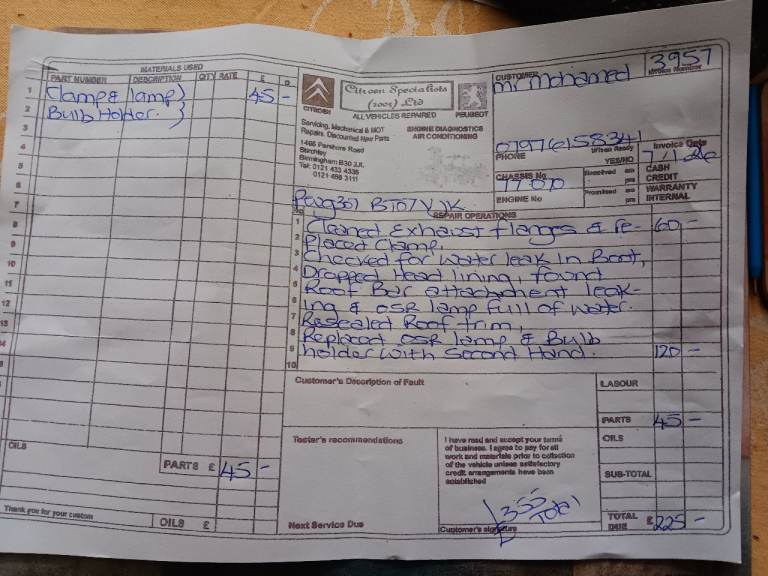 MATERIALS USED
PART NUMBER DESCRIPTION QTY RATE £ p
1 Clamp & lamp) 45 -
2 Bulb Holder. )
3
4
5
6
7
8
9
10
11
12
13
14
OILS
PARTS £ 45 -
Thank you for your custom
OILS £
CITROËN
Citroen Specialists
(2005) Ltd
ALL VEHICLES REPAIRED
PEUGEOT
Servicing, Mechanical & MOT
Repairs. Discounted New Parts
ENGINE DIAGNOSTICS
AIR CONDITIONING
1495 Pershore Road
Stirchley
Birmingham B30 2JL
Tel: 0121 433 4336
0121 458 3111
CUSTOMER
Mr Mohamed
3957
Invoice Number
PHONE
When Ready
YES/NO
Invoice Date
7/1/26
CHASSIS No
77070
Received am pm
CASH
CREDIT
ENGINE No
Promised am pm
WARRANTY
INTERNAL
Peug 307 BT07VJK
No REPAIR OPERATIONS
1 Cleaned Exhaust flanges & re- 60 -
2 placed Clamp,
3 Checked for water leak in Boot,
4 Dropped Head lining, found
5 Roof Bar attachment leak-
6 ing & OSR lamp full of water.
7 Resealed Roof trim,
8 Replaced OSR lamp & Bulb
9 holder with Second Hand. 120 -
10
Customer's Description of Fault
LABOUR
PARTS 45 -
Tester's recommendations
I have read and accept your terms
of business. I agree to pay for all
work and materials prior to collection
of the vehicle unless satisfactory
credit arrangements have been
established
OILS
SUB-TOTAL
£355
Total
Next Service Due
Customer's signature
TOTAL DUE £225 -